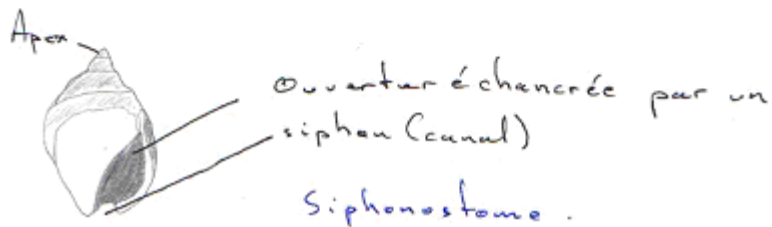 Apex
Ouvertur échancrée par un
siphon (canal)
Siphonostome.